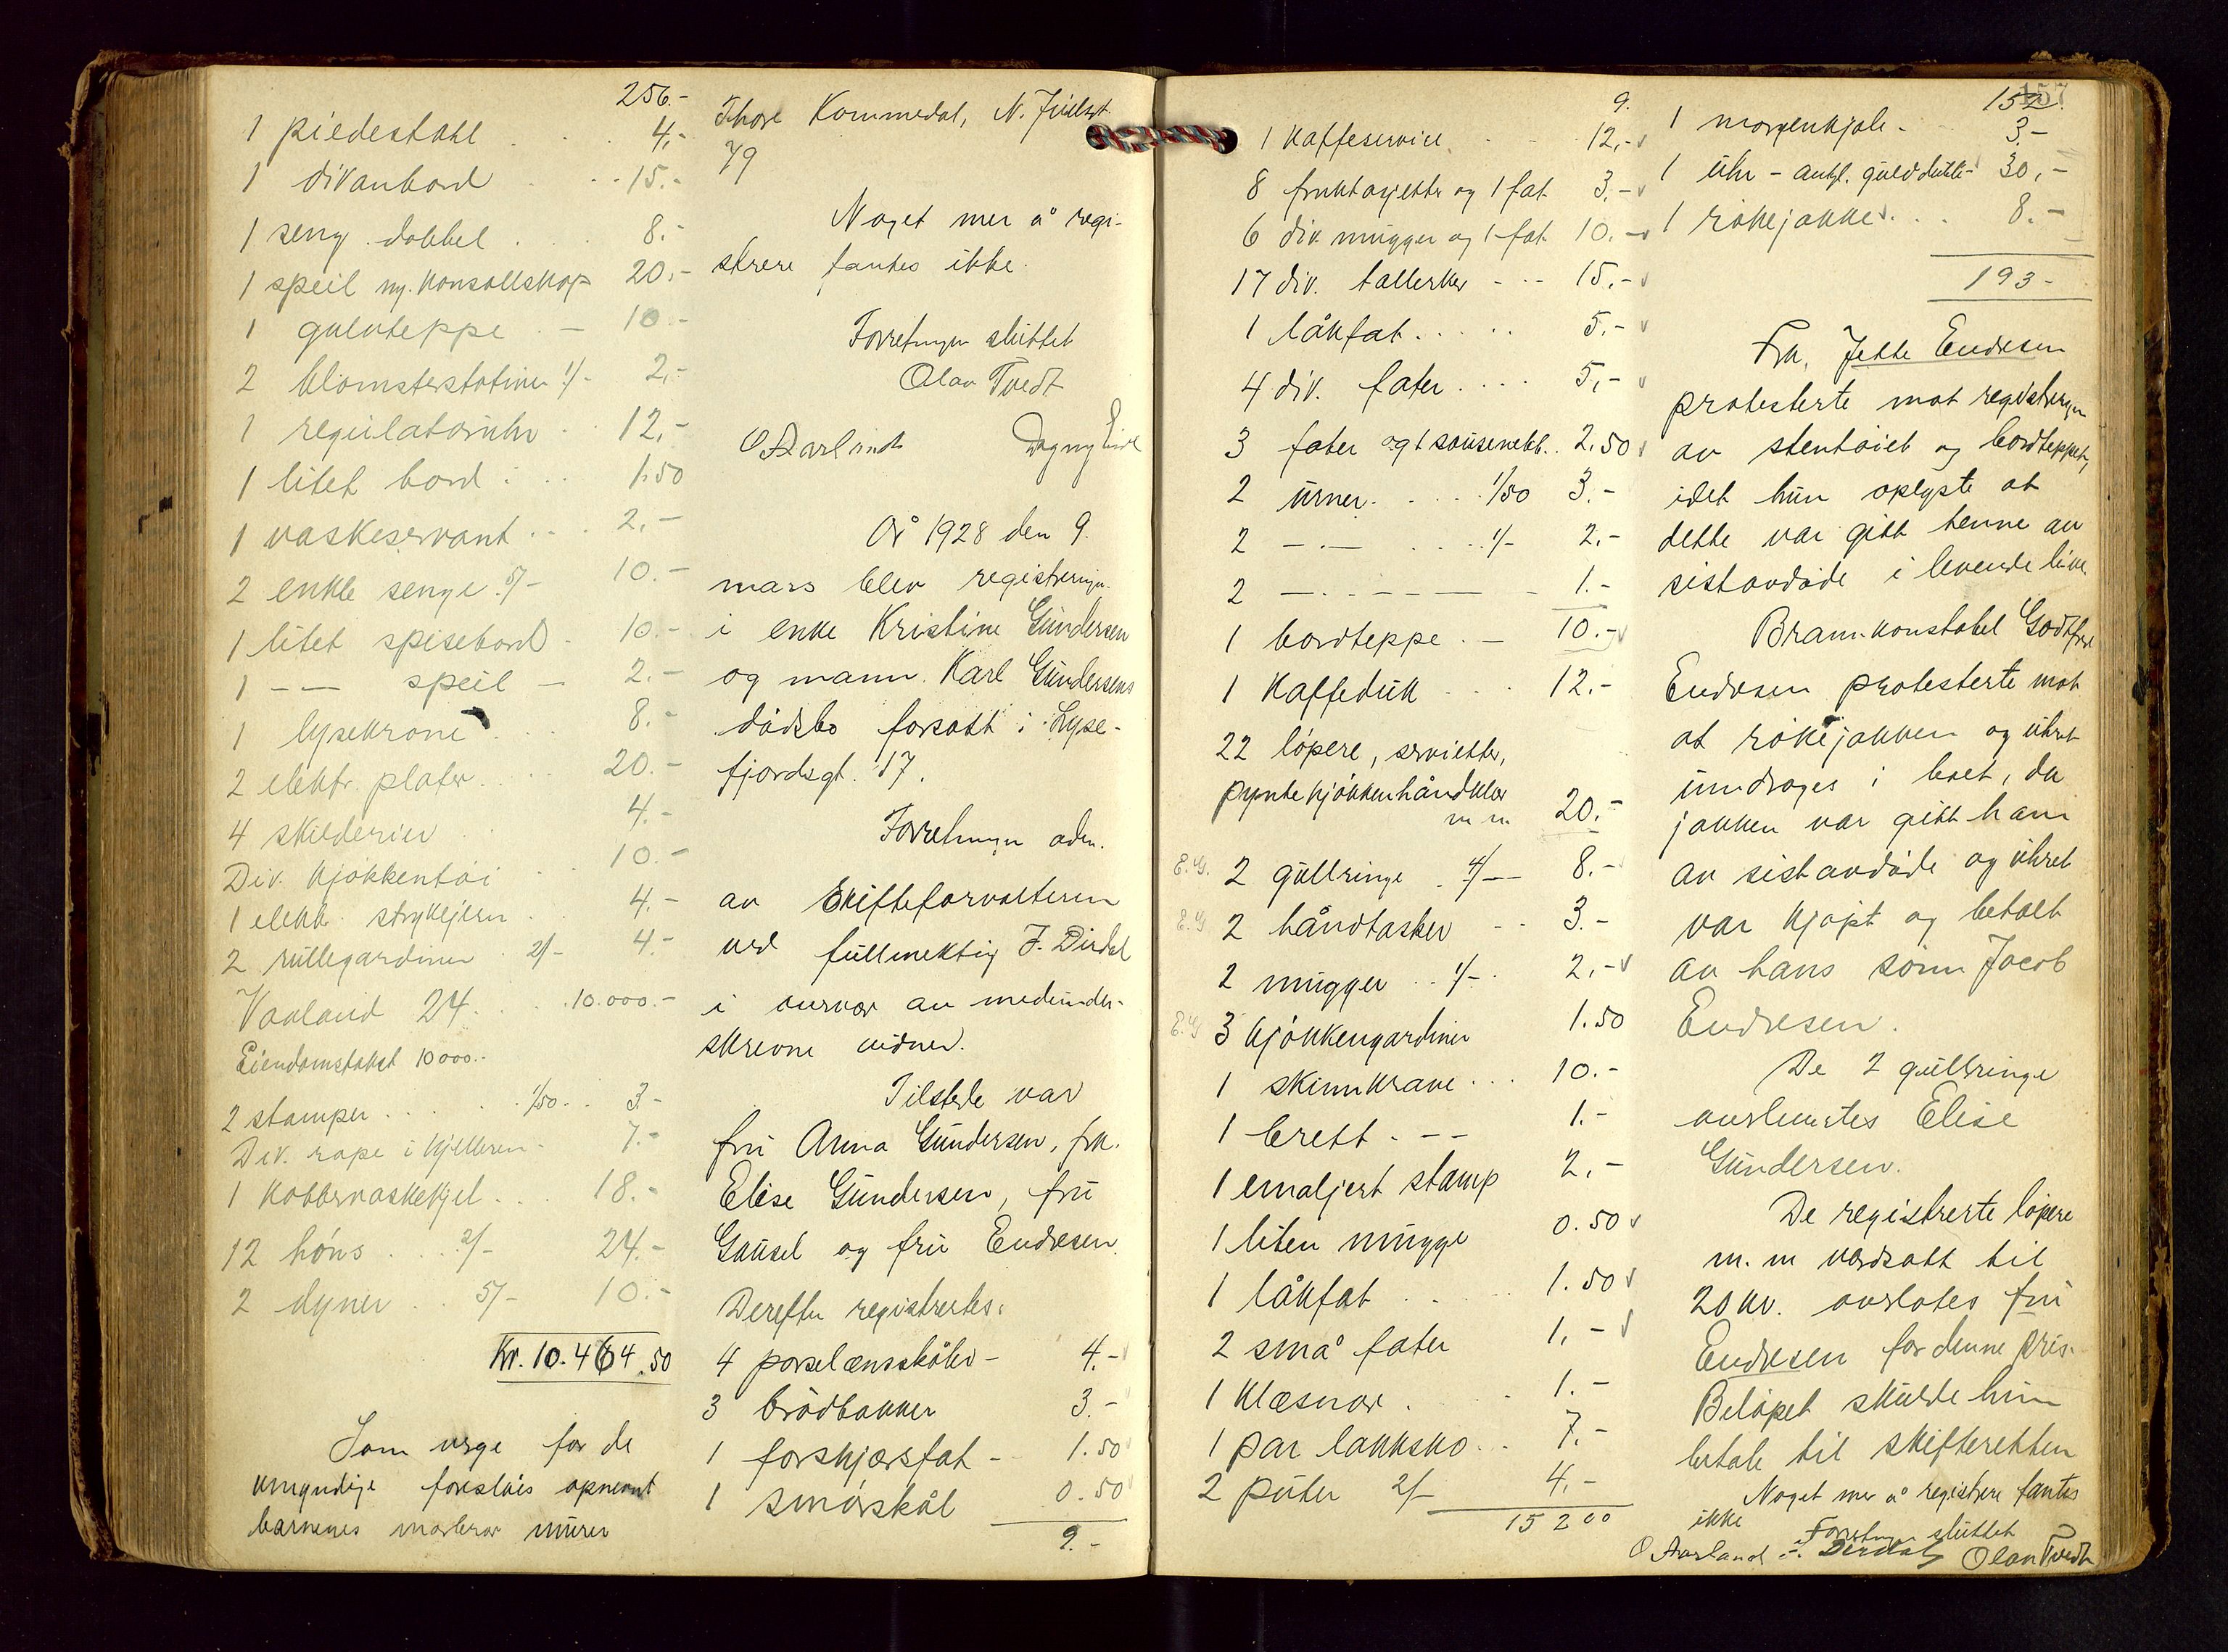 256.-
1 piedestahl . . 4,-
1 divanbord . . . 15.-
1 seng . dobbel . . 8.-
1 speil m. konsollskap 20.-
1 gulvteppe . - 10.-
2 blomsterstativer 1/- 2,-
1 regulatoruhr . . 12,-
1 litet bord . . . 1.50
1 vaskeservant . . . 2.-
2 enkle senge 5/- 10.-
1 litet spisebord . 10.-
1 -- speil - 2.-
1 lysekrone . . . 8.-
2 elektr. plater . . . 20.-
4 skilderier . . 4.-
Div. kjøkkentøi . . 10.-
1 elektr. strykejern . 4.-
2 rullegardiner . 2/- 4.-
Vaaland 24. . . . 10.000.-
Eiendomstakst 10000.-
2 stamper . . . . 1/50 . . 3.-
Div. rape i kjelleren . 7.-
1 kobbervaskekjel . . . 18.-
12 høns . . . 2/- 24.-
2 dyner . . 5/- 10.-
Kr. 10.464.50
Som verge for de
umyndige foreslaes opnevnt
barnenes morbror murer
Thore Kommedal, N.
79
Noget mer å regi-
strere fantes ikke.
Forretningen sluttet
Olav Tvedt
O Aarland Dagny
År 1928 den 9.
mars blev registrering
i enke Kristine Gundersen
og mann Karl Gundersens
dødsbo forsatt i Lyse-
fjordsgt. 17.
Forretningen adm.
av Skifteforvalteren
ved fullmektig J. Dirdal
i overvær av medunder-
skrevne vidner.
Tilstede var
fru Anna Gundersen, frk.
Elise Gundersen, fru
Gausel og fru Endresen.
Derefter registrertes:
4 porselænsskåler - 4.-
3 brødbakker 3.-
1 forskjærsfat - 1.50
1 smørskål 0.50
9.-
9.
1 kaffeservice . - - 12,- v
8 fruktasjetter og 1 fat 3,- v
6 div. mugger og 1 fat 10.- v
17 div. tallerker - - - 15.- v
1 låkfat . . . . . 5.- v
4 div. fater . . . . 5,- v
3 fater og 1 sausenebb . . 2.50 v
2 urner . . . . 1/50 3.-
2 - . - . . . . 1/- 2.-
2 - . - - - - - 1.-
1 bordteppe . - 10.- v
1 Kaffeduk . . . 12.-
22 løpere, servietter,
pyntekjøkkenhåndklær
m m. 20.-
E.G. 2 gullringe . 4/- 8.-
E.G 2 håndtasker - - 3.-
2 mugger . . 1/- . 2.- v
E.G 3 kjøkkengardiner 1.50
1 skinnkrave . . . 10.-
1 brett . - - 1.-
1 emaljert stamp 2,-
1 liten mugge 0.50 v
1 låkfat . . . . 1.50 v
2 små fater 1,- v
1 klæsnor . . 1.-
1 par lakksko . . 7.-
2 puter 2/- 4.-
15200
157
152.
1 morgenkjole - 3.-
1 uhr - antgl. gulddublé - 30,-
1 røkejakke . . . 8.-
193-
Frk. Jette Endresen
protesterte mot registreringen
av stentøiet og bordteppet,
idet hun oplyste at
dette var gitt henne av
sistavdøde i levende live.
Brannkonstabel Godtfred
Endresen protesterte mot
at røkejakken og uhret
inndrages i boet, da
jakken var gitt ham
av sistavdøde og uhret
var kjøpt og betalt
av hans sønn Jacob
Endresen.
De 2 gullringe
overlevertes Elise
Gundersen.
De registrerte løpere
m. m verdsatt til
20 kr. overlates fru
Endresen for denne pris.
Beløpet skulde hun
betale til skifteretten
Noget mer å registrere fantes
ikke
Forretningen sluttet
O Aarland Dirdal Olav Tvedt